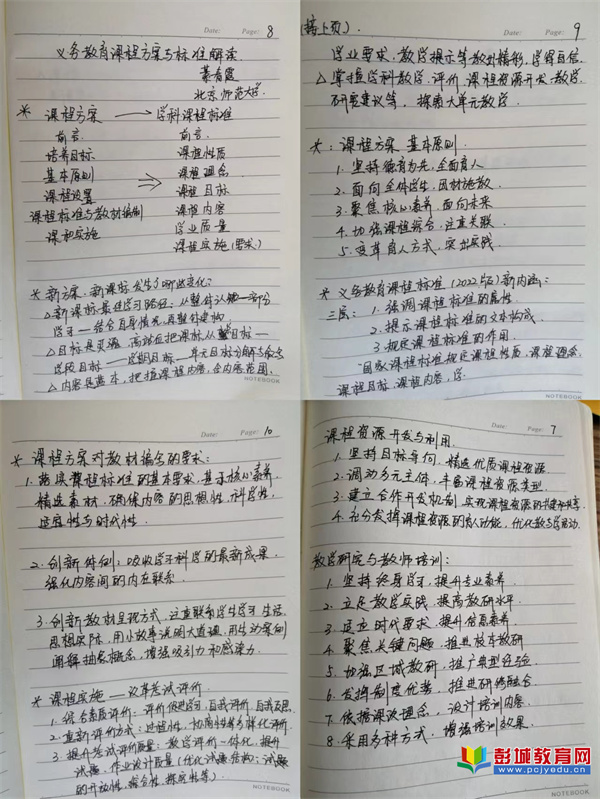 Date: Page: 8
义务教育课程方案与标准解读
北京师范大学.
* 课程方案 → 学科课程标准
前言 前言.
培养目标 课程性质
基本原则 课程理念
课程设置 课程目标
课程标准与教材编制 课程内容
课程实施 学业质量
课程实施(要求)
* 新方案、新课标发生了哪些变化:
△新课标最佳学习路径: 从整体认知—部分
学习—结合自身情况,再整体建构
△目标是灵魂,高站位把课标从
学段目标—学期目标—单元目标分解与
△内容是基本,把握课程内容,全内容范围.
NOTEBOOK
(接上页).
Date: Page: 9
学业要求、教学提示等教出精彩,学得自信.
△掌握学科教学、评价、课程资源开发、教学
研究建议等,探索大单元教学.
*: 课程方案 基本原则.
1. 坚持德育为先,全面育人
2. 面向全体学生,因材施教
3. 聚焦核心素养,面向未来
4. 加强课程综合,注重关联
5. 变革育人方式,突出实践.
* 义务教育课程标准(2022版)新内涵:
三层: 1. 强调课程标准的属性
2. 揭示课程标准的文本构成
3. 规定课程标准的作用
"国家课程标准规定课程性质、课程理念、
课程目标、课程内容、学
NOTEBOOK
Date: Page: 10
* 课程方案对教材编写的要求:
1. 落实课程标准的基本要求,基于核心素养,
精选素材,确保内容的思想性、科学性、
适宜性与时代性.
2. 创新体例: 吸收学习科学的最新成果,
强化内容间的内在联系.
3. 创新教材呈现方式,注重联系学生学习、生活、
思想实际,用小故事说明大道理,用生动案例
阐释抽象概念,增强吸引力和感染力.
* 课程实施—改革考试评价
1. 综合素质评价: 评价促进学习,自我评价、自我反思.
2. 更新评价方式: 过程性、协商性、多样化评价
3. 提升考试评价质量: 教学评价一体化,提升
试题、作业设计质量(优化试题结构;试题
的开放性、综合性、探究性等)
NOTEBOOK
Date: Page: 7
课程资源开发与利用.
1. 坚持目标导向,精选优质课程资源.
2. 调动多元主体,丰富课程资源类型.
3. 建立合作开发机制,实现课程资源的共建和共享.
4. 充分发挥课程资源的育人功能,优化教与学活动.
教学研究与教师培训:
1. 坚持终身学习,提升专业素养.
2. 立足教学实践,提高教研水平.
3. 建立时代要求,提升信息素养
4. 聚焦关键问题,推进校本教研
5. 加强区域教研,推广典型经验
6. 发挥制度优势,推进研修融合
7. 依据课改理念,设计培训内容
8. 采用多种方式,增强培训效果.
彭城教育网
www.pcjyedu.cn
NOTEBOOK